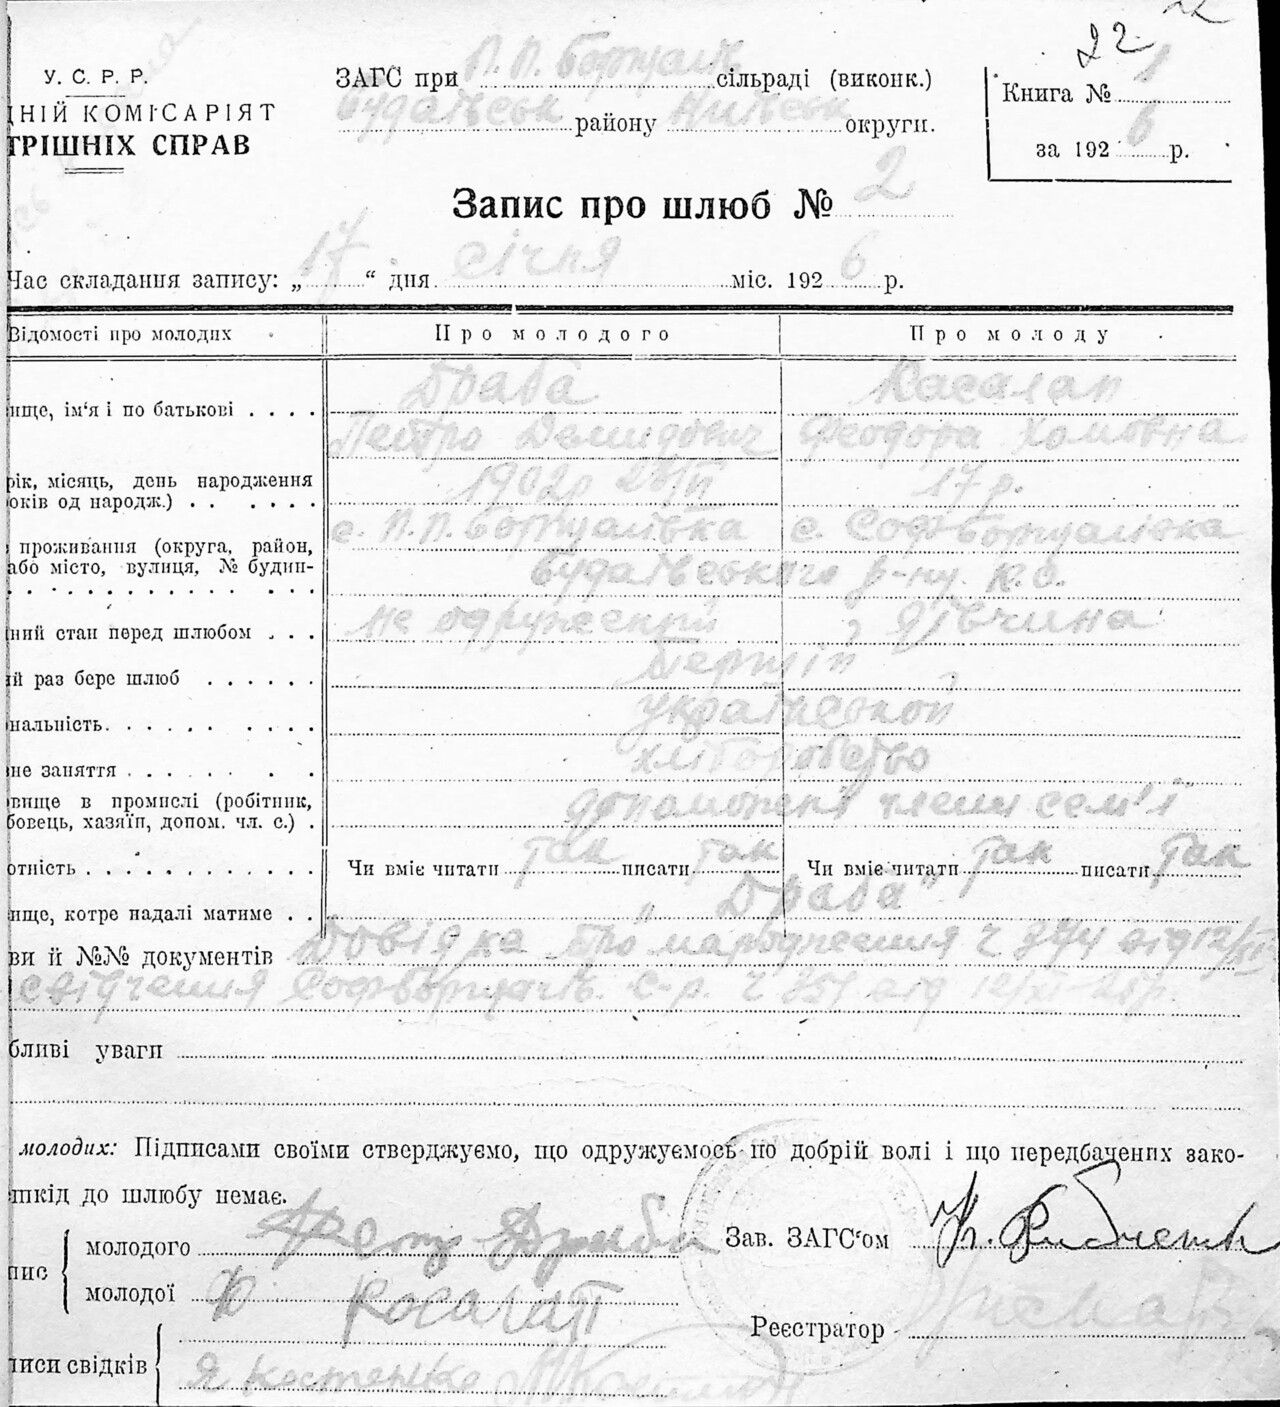 22
У. С. Р. Р.
НІЙ КОМІСАРІЯТ
ТРІШНІХ СПРАВ
ЗАГС при П. П. Борщагів сільраді (виконк.)
Будаївськ району Київськ округи.
Книга № 1
за 1926 р.
Запис про шлюб № 2
Час складання запису: „ 17 “ дня січня міс. 1926 р.
Відомості про молодих
Про молодого
Про молоду
ище, ім'я і по батькові . . . .
Драба
Петро Демидович
Феодора Хомовна
рік, місяць, день народження
оків од народж.) . . . . . .
1902р
17 р.
проживання (округа, район,
або місто, вулиця, № будин-
с. П.П. Борщагівка
с. Софборщагівка
Будаївського р-ну К.О.
ний стан перед шлюбом . . .
не одружений
дівчина
й раз бере шлюб . . . . . .
перший
нальність. . . . . . . . . .
української
не заняття . . . . . . . .
хліборобство
вище в промислі (робітник,
бовець, хазяїн, допом. чл. с.) .
члени сем'ї
отність . . . . . . . . . . . .
Чи вміє читати так писати так
Чи вміє читати так писати так
ище, котре надалі матиме . .
„Драба“
ви й №№ документів Довідка про народження
Софборщагів. с-р.
бливі уваги
молодих: Підписами своїми стверджуємо, що одружуємось по добрій волі і що передбачених зако-
шкід до шлюбу немає.
пис
молодого Драба
молодої Косалап
Зав. ЗАГС'ом
Реєстратор
писи свідків
Я Костенко